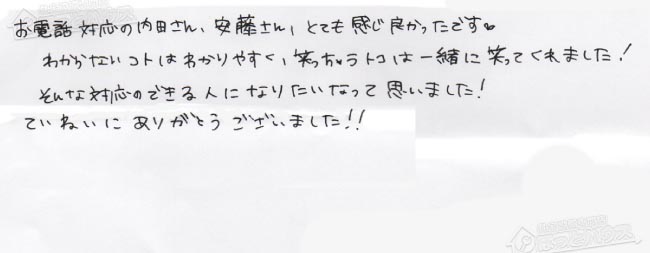 お電話対応の内田さん、安藤さん、とても感じ良かったです♥
わからないコトはわかりやすく、笑っちゃうトコは一緒に笑ってくれました！
そんな対応のできる人になりたいなって思いました！
ていねいにありがとうございました!!